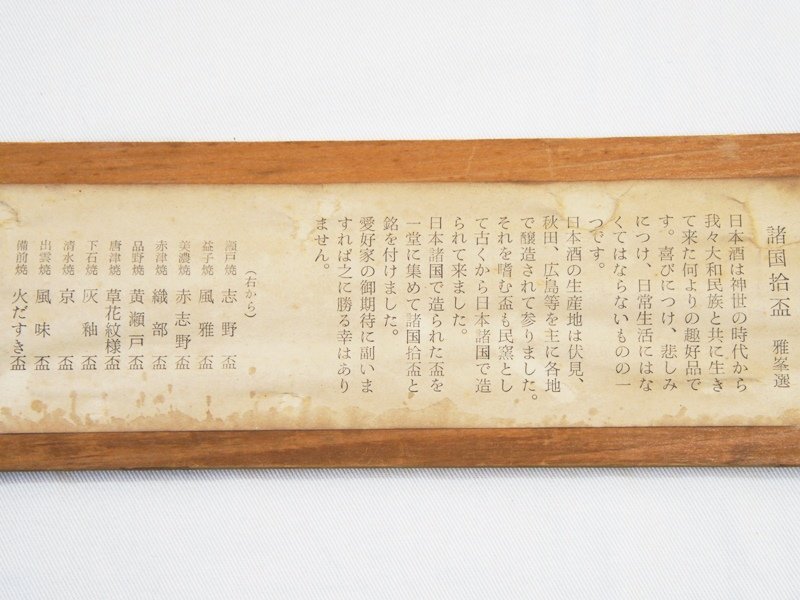 諸国拾盃 雅峯選
日本酒は神世の時代から
我々大和民族と共に生き
て来た何よりの趣好品で
す。喜びにつけ、悲しみ
につけ、日常生活にはな
くてはならないものの一
つです。
日本酒の生産地は伏見、
秋田、広島等を主に各地
で醸造されて参りました。
それを嗜む盃も民窯とし
て古くから日本諸国で造
られて来ました。
日本諸国で造られた盃を
一堂に集めて諸国拾盃と
銘を付けました。
愛好家の御期待に副いま
すれば之に勝る幸はあり
ません。
(右から)
瀬戸焼 志野盃
益子焼 風雅盃
美濃焼 赤志野盃
赤津焼 織部盃
品野焼 黄瀬戸盃
唐津焼 草花紋様盃
下石焼 灰釉盃
清水焼 京盃
出雲焼 風味盃
備前焼 火だすき盃